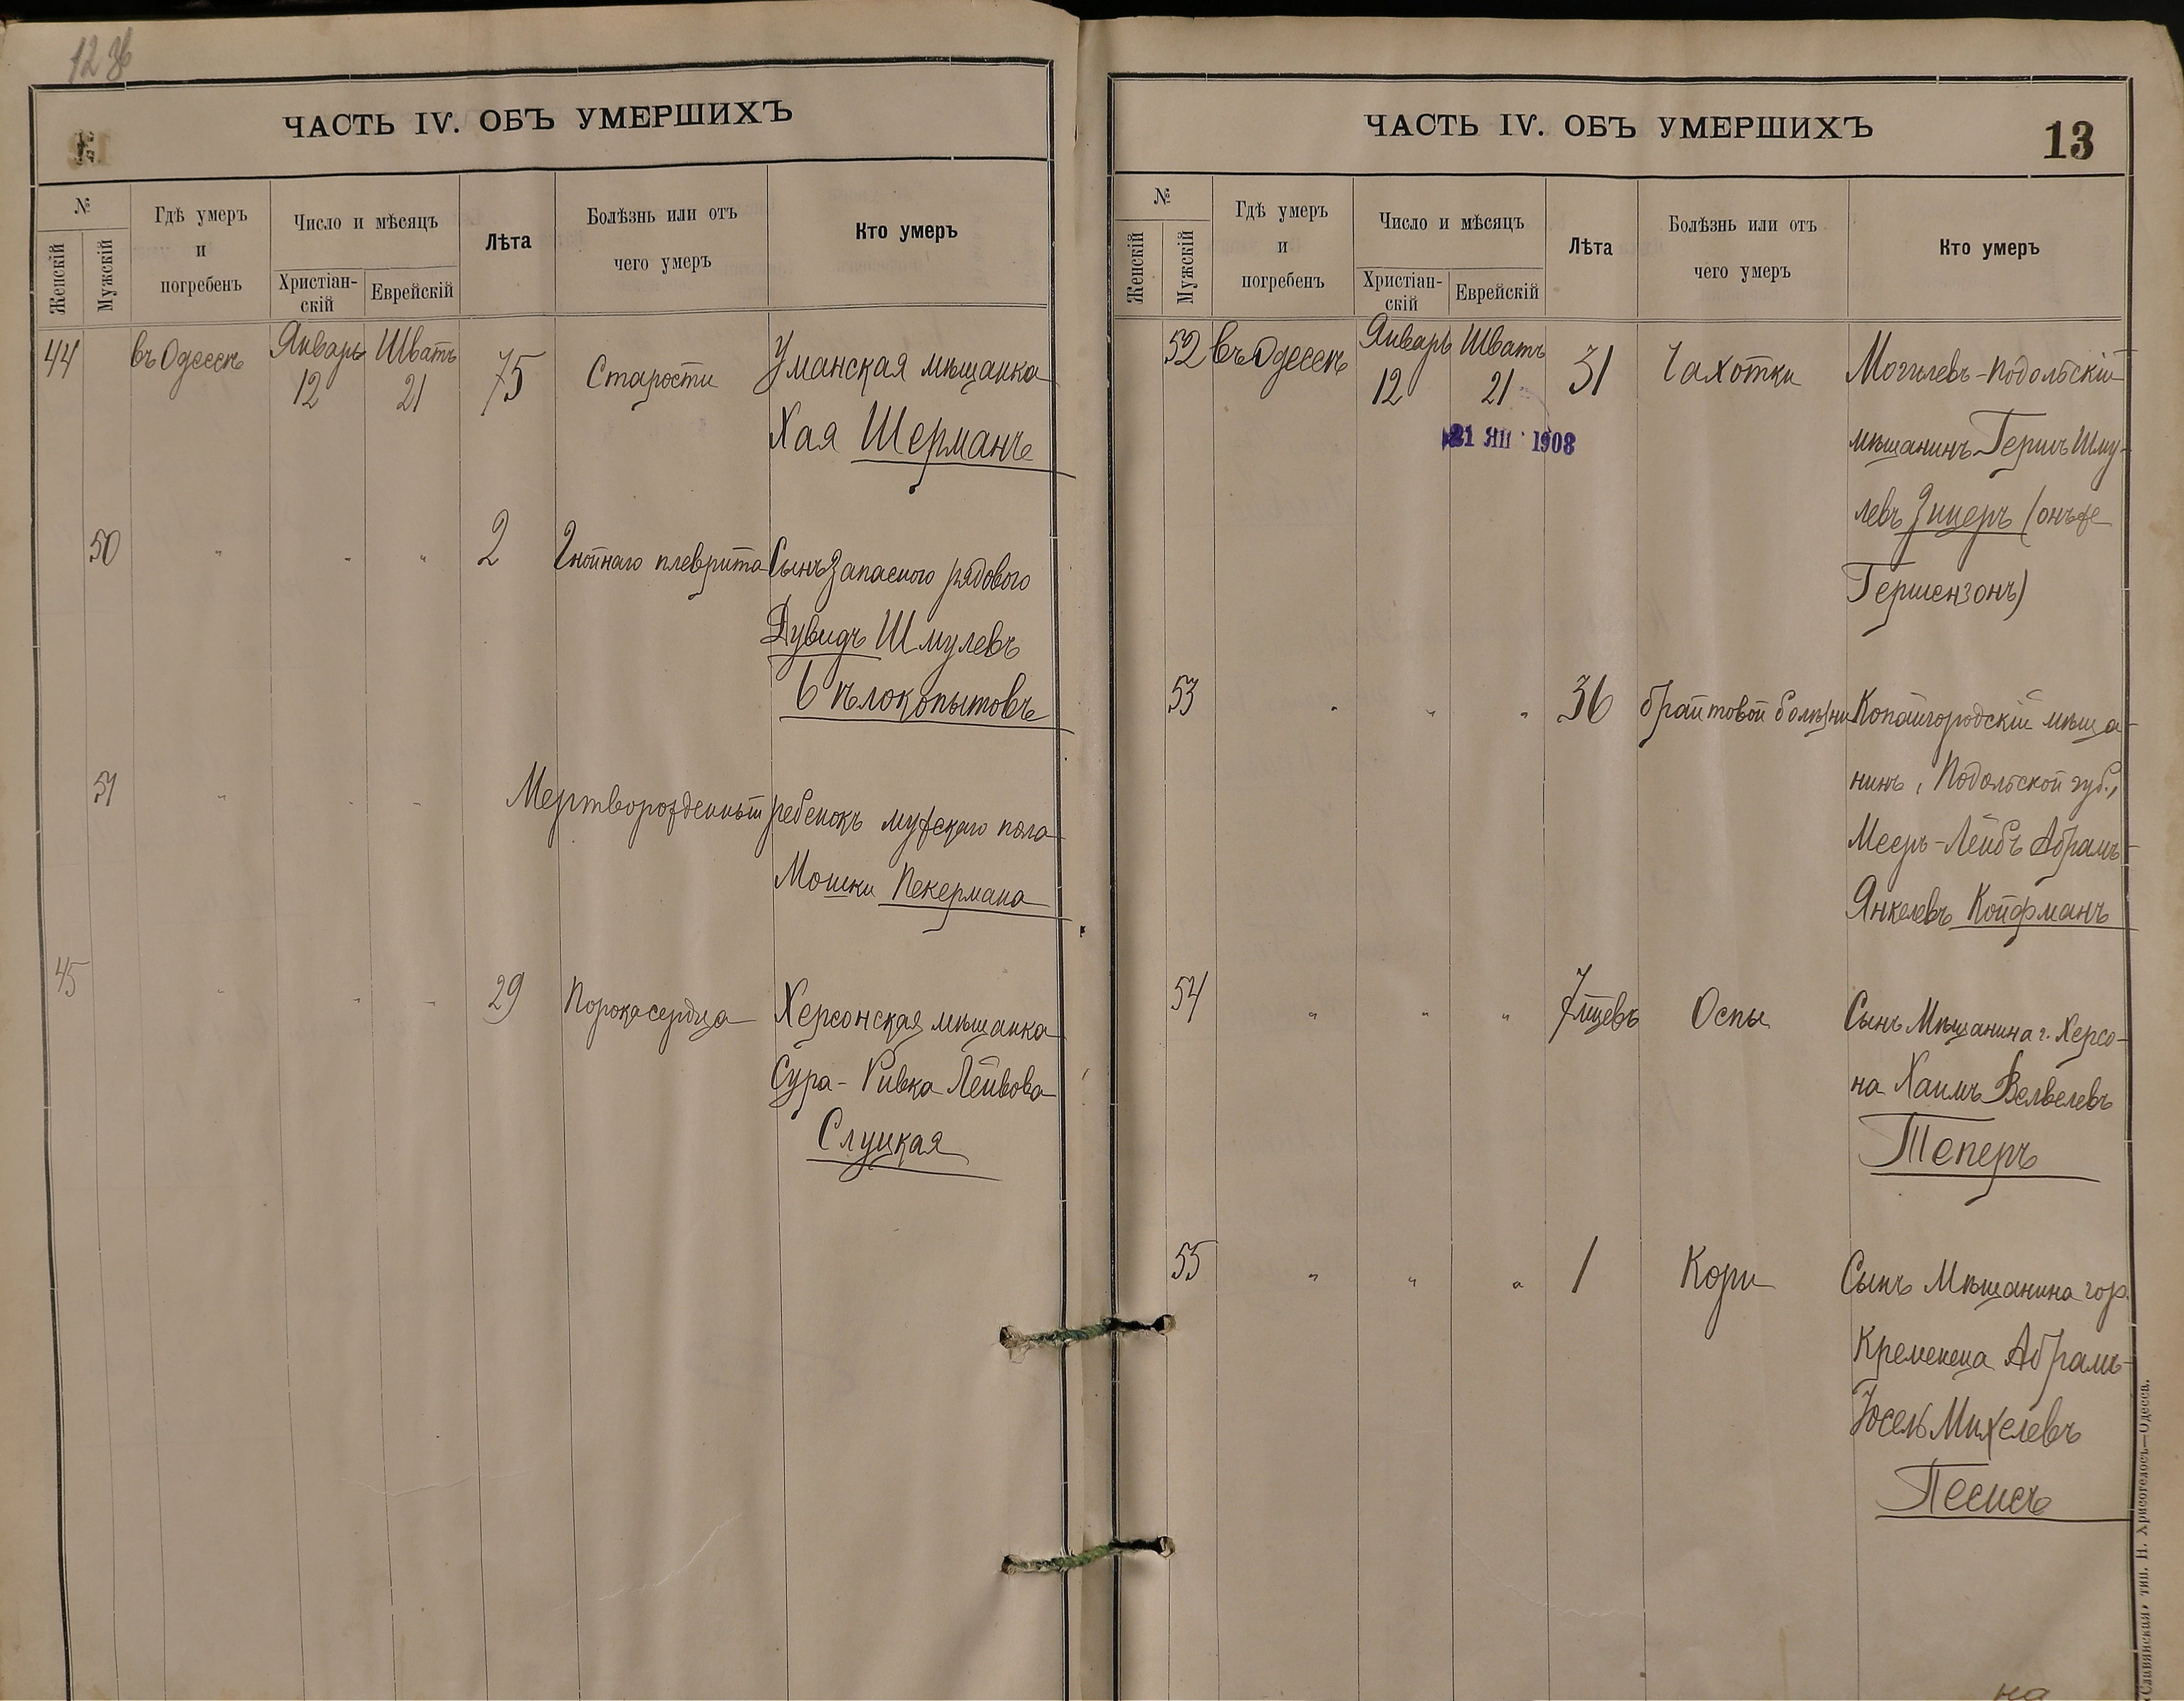 12 об
ЧАСТЬ IV. ОБЪ УМЕРШИХЪ
№
Женскій
Мужскій
Гдѣ умеръ
и
погребенъ
Число и мѣсяцъ
Христіан-
скій
Еврейскій
Лѣта
Болѣзнь или отъ
чего умеръ
Кто умеръ
44 въ Одессѣ Январь Шватъ 75 Старости Уманская мѣщанка
12 21
Хая Шерманъ
50 " " " 2 Гнойнаго плеврита Сынъ запасного рядового
Дувидъ Шмулевъ
Бѣлокопытовъ
51 " " " Мертворожденный ребенокъ мужскаго пола
Мошки Пекермана
45 " " " 29 Порока сердца Херсонская мѣщанка
Сура-Ривка Лейбова
Слуцкая
ЧАСТЬ IV. ОБЪ УМЕРШИХЪ
13
№
Женскій
Мужскій
Гдѣ умеръ
и
погребенъ
Число и мѣсяцъ
Христіан-
скій
Еврейскій
Лѣта
Болѣзнь или отъ
чего умеръ
Кто умеръ
52 въ Одессѣ Январь Шватъ 31 Чахотки Могилевъ-Подольскій
12 21
21 ЯН 1908
мѣщанинъ Гершъ Шму-
левъ Зицеръ (онъ же
Гершензонъ)
53 " " " 36 брайтовой болѣзни Копайгородскій мѣща-
нинъ, Подольской губ.,
Мееръ-Лейбъ Абрамъ-
Янкелевъ Койфманъ
54 " " " 7 мцевъ Оспы Сынъ Мѣщанина г. Херсо-
на Хаимъ Велвелевъ
Теперъ
55 " " " 1 Кори Сынъ Мѣщанина гор.
Кременца Абрамъ-
Іосель Михелевъ
Песисъ
«Славянская» тип. Н. Хрисогелосъ—Одесса.
на